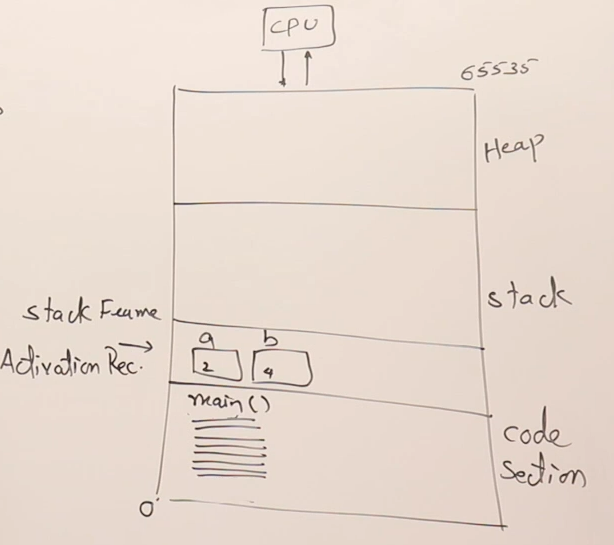 CPU
65535
Heap
stack
stack Frame
Activation Rec.
a b
2 4
main()
code
Section
0